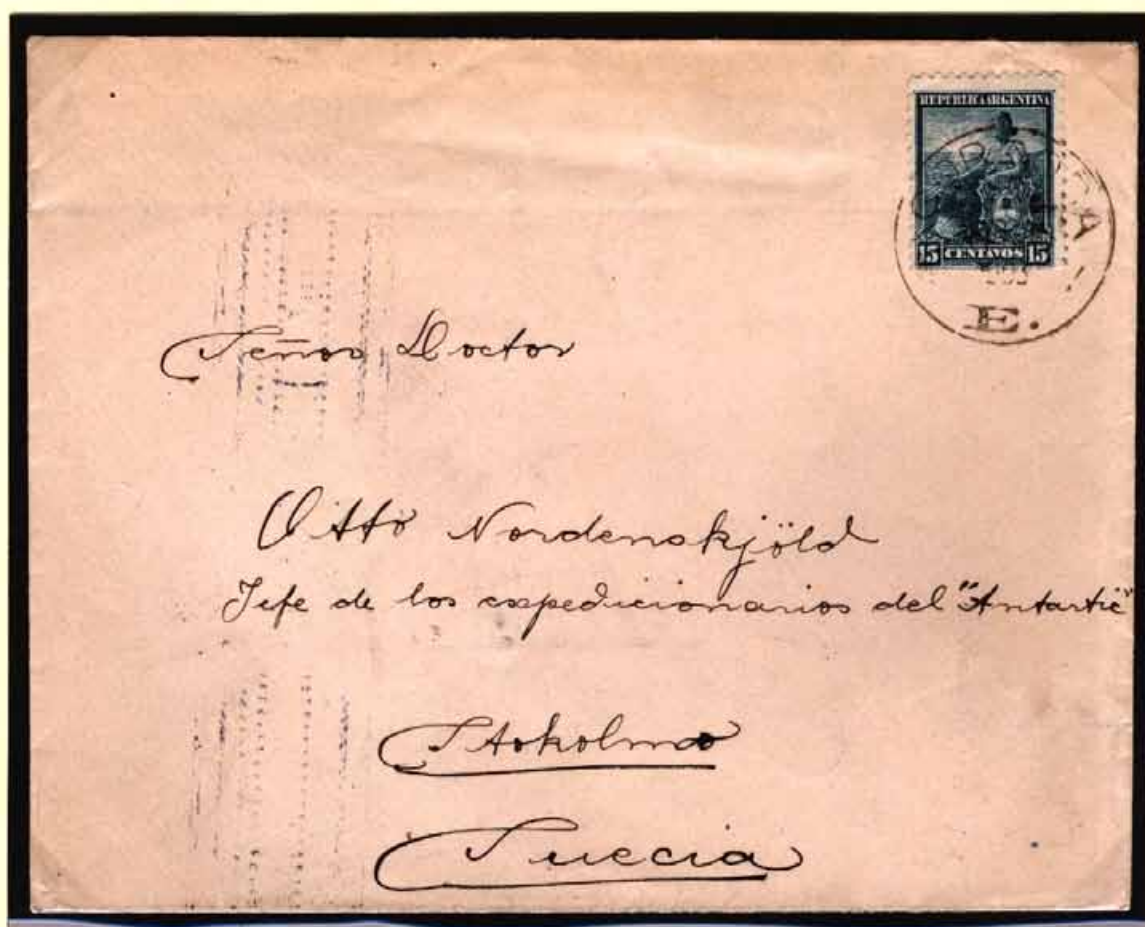 REPUBLICA ARGENTINA
15 CENTAVOS 15
E.
Señor Doctor
Otto Nordenskjöld
Jefe de los expedicionarios del "Antartic"
Stokolmo
Suecia